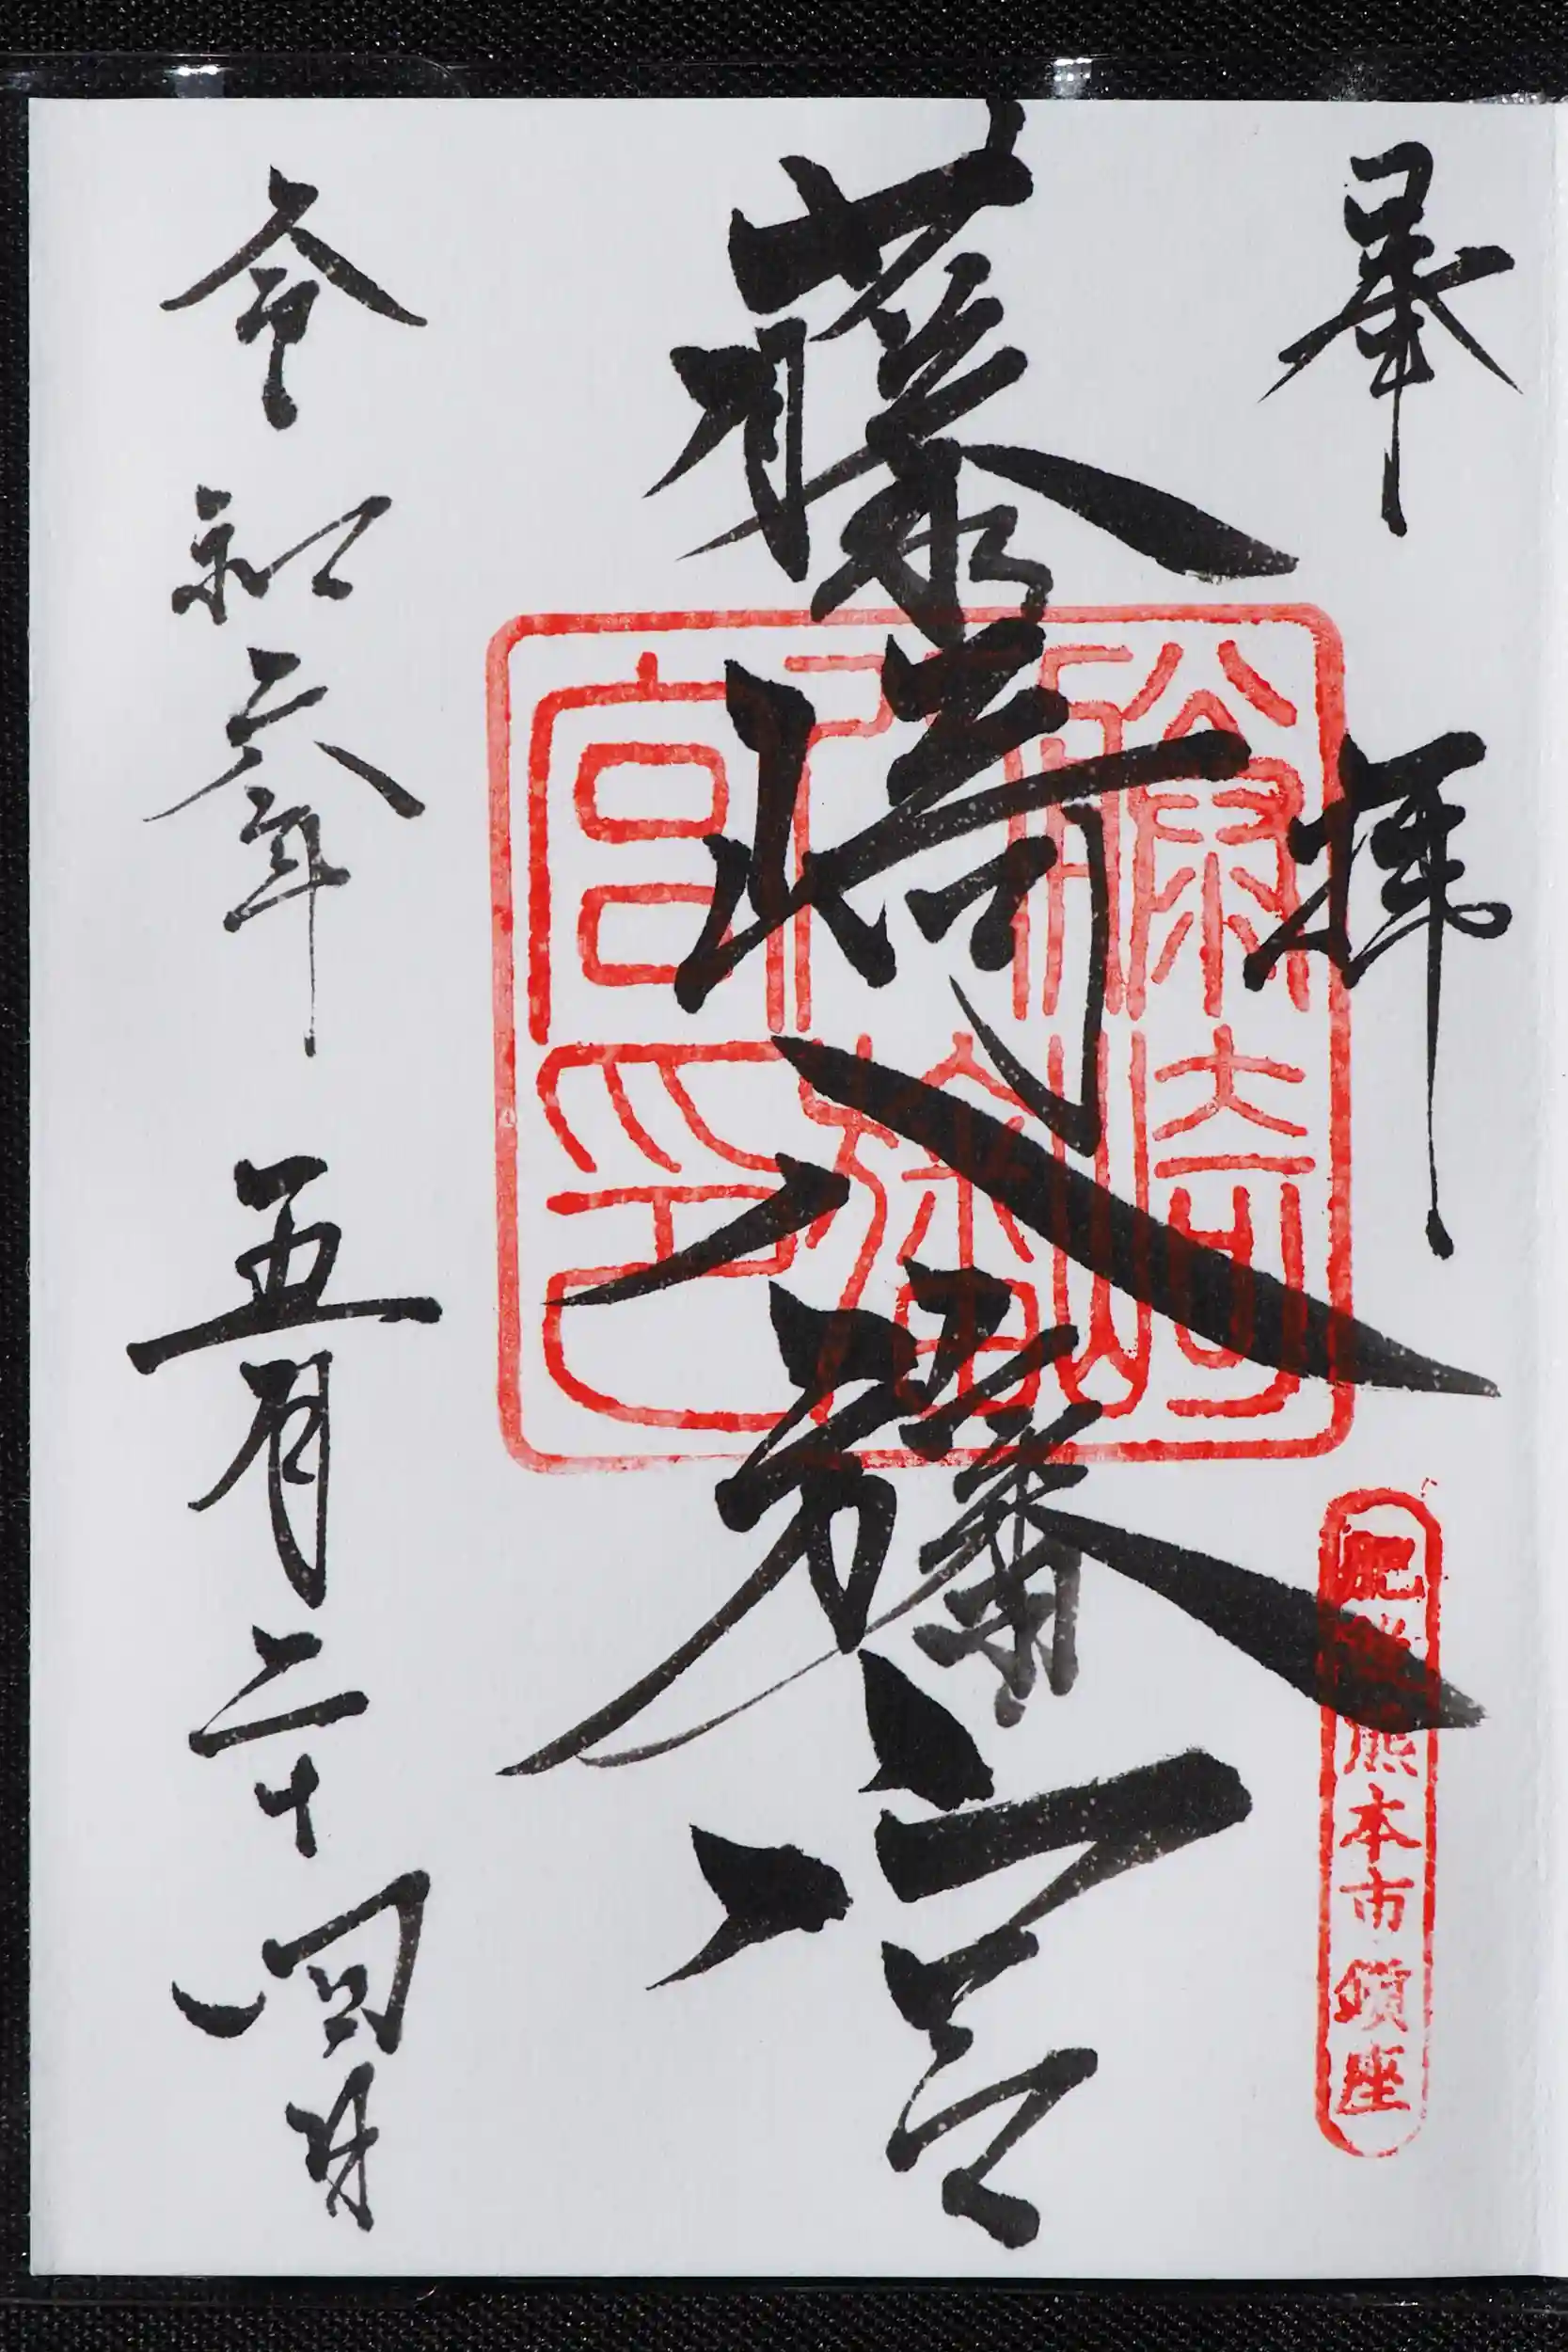 奉拝
肥後熊本市鎮座
藤崎八旛宮
藤崎八旛宮印
令和六年五月二十四日